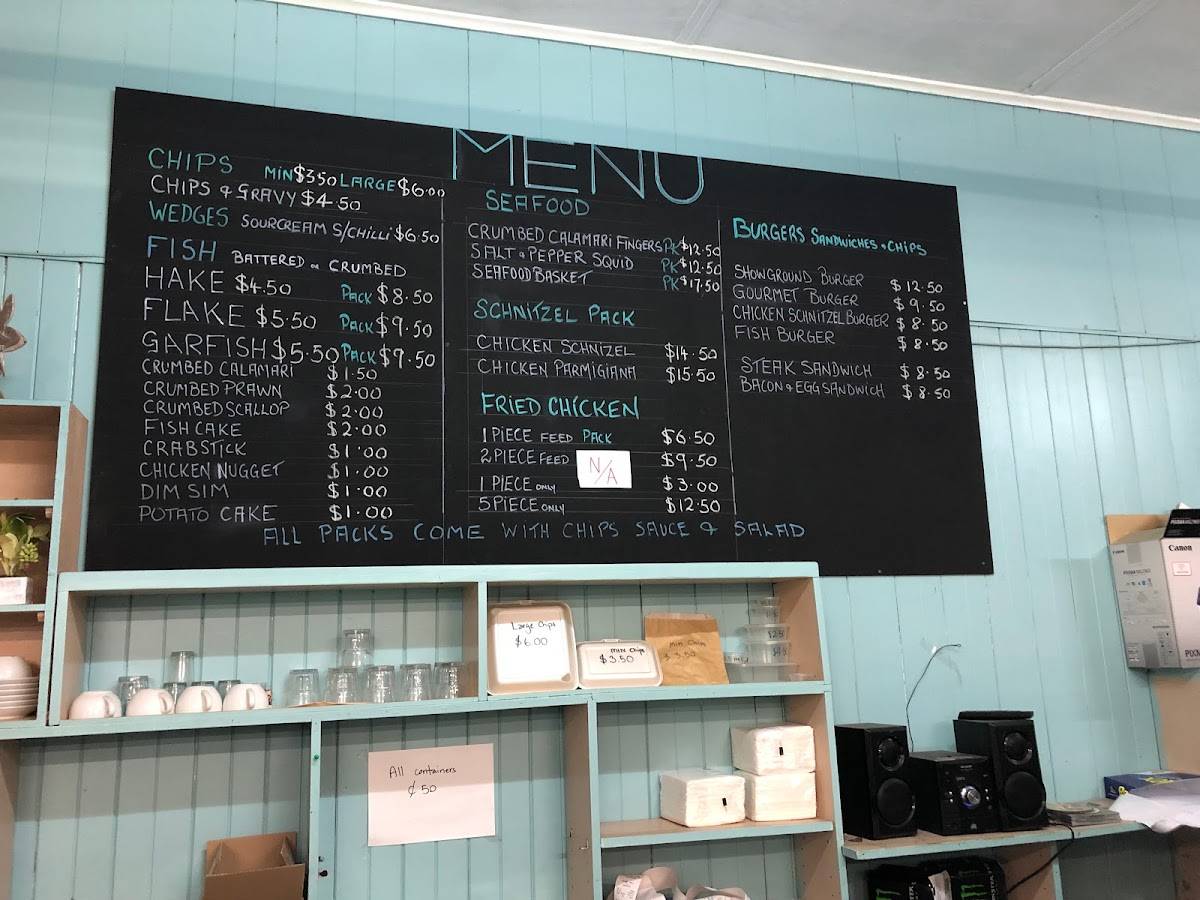 MENU
CHIPS MIN $3.50 LARGE $6.00
CHIPS & GRAVY $4.50
WEDGES SOURCREAM S/CHILLI $6.50
FISH BATTERED OR CRUMBED
HAKE $4.50 PACK $8.50
FLAKE $5.50 PACK $9.50
GARFISH $5.50 PACK $9.50
CRUMBED CALAMARI $1.50
CRUMBED PRAWN $2.00
CRUMBED SCALLOP $2.00
FISH CAKE $2.00
CRABSTICK $1.00
CHICKEN NUGGET $1.00
DIM SIM $1.00
POTATO CAKE $1.00
SEAFOOD
CRUMBED CALAMARI FINGERS PK $12.50
SALT & PEPPER SQUID PK $12.50
SEAFOOD BASKET PK $17.50
SCHNITZEL PACK
CHICKEN SCHNIZEL $14.50
CHICKEN PARMIGIANA $15.50
FRIED CHICKEN
1 PIECE FEED PACK $6.50
2 PIECE FEED $9.50
N/A
1 PIECE ONLY $3.00
5 PIECE ONLY $12.50
BURGERS SANDWICHES & CHIPS
SHOWGROUND BURGER $12.50
GOURMET BURGER $9.50
CHICKEN SCHNITZEL BURGER $8.50
FISH BURGER $8.50
STEAK SANDWICH $8.50
BACON & EGG SANDWICH $8.50
ALL PACKS COME WITH CHIPS SAUCE & SALAD
Large Chips
$6.00
MIN Chips
$3.50
Min Chips
$3.50
All containers
¢50
Canon
PIXMA